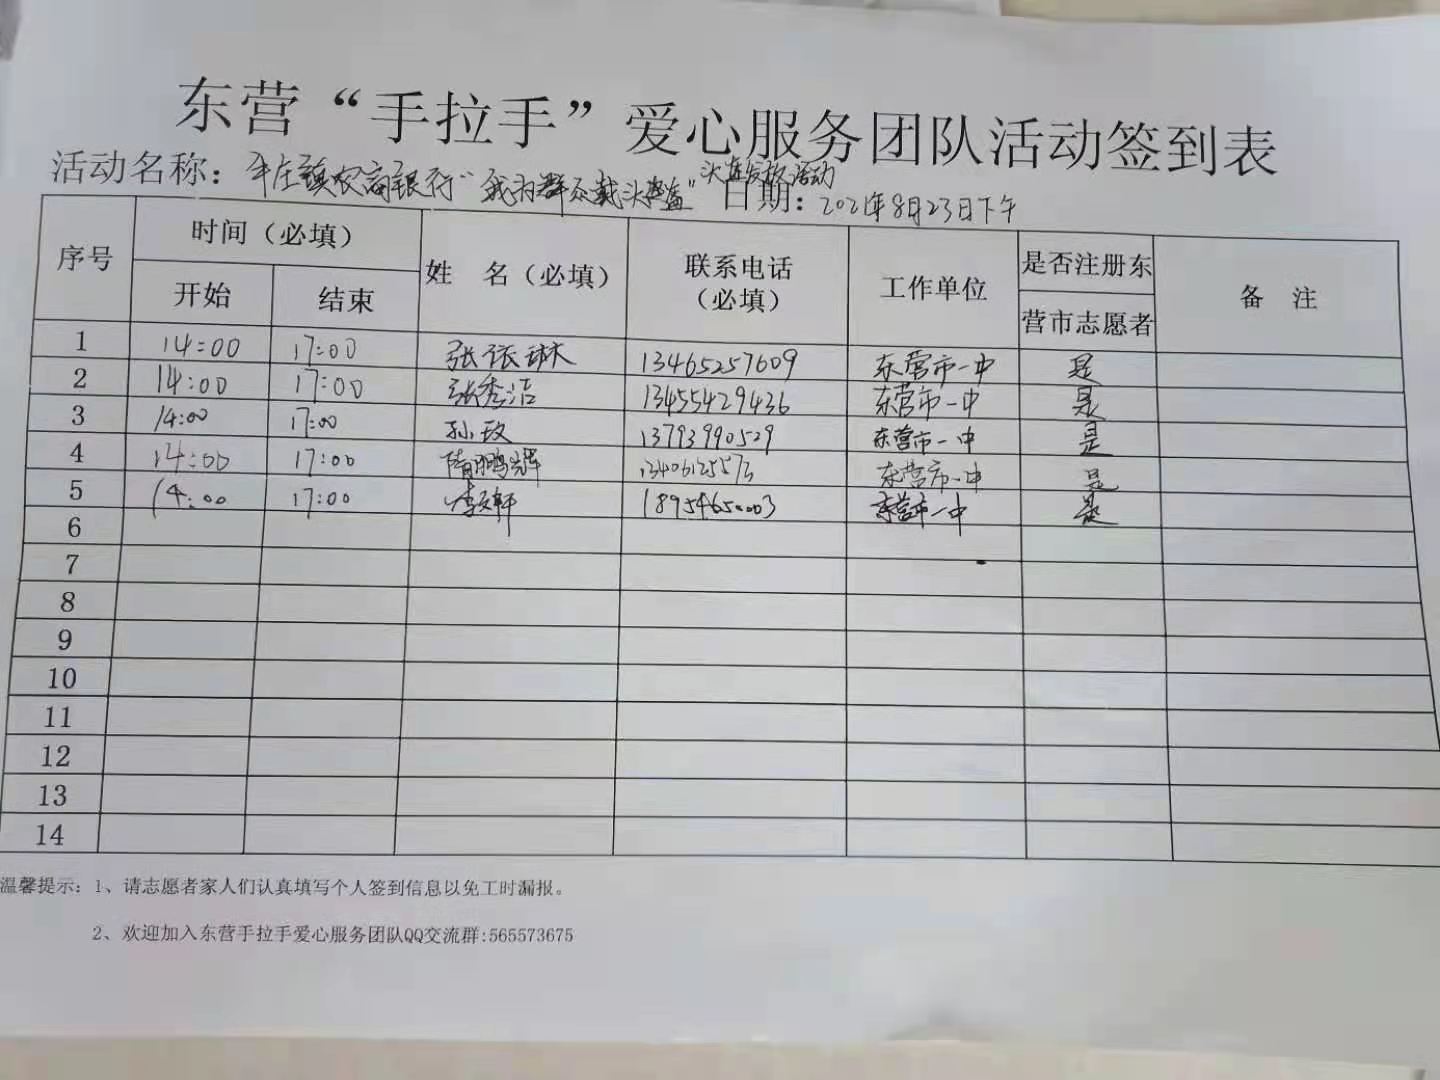 东营“手拉手”爱心服务团队活动签到表
活动名称：牛庄镇农商银行“我为群众戴头盔”头盔发放活动 日期：2021年8月23日下午
序号 时间（必填） 姓 名（必填） 联系电话（必填） 工作单位 是否注册东营市志愿者 备 注
开始 结束
1 14:00 17:00 张依琳 13465257609 东营市一中 是
2 14:00 17:00 张秀洁 13455429436 东营市一中 是
3 14:00 17:00 孙玫 13793990529 东营市一中 是
4 14:00 17:00 隋鹏辉 东营市一中 是
5 14:00 17:00 18954650003 东营市一中 是
6
7
8
9
10
11
12
13
14
温馨提示：1、请志愿者家人们认真填写个人签到信息以免工时漏报。
2、欢迎加入东营手拉手爱心服务团队QQ交流群:565573675